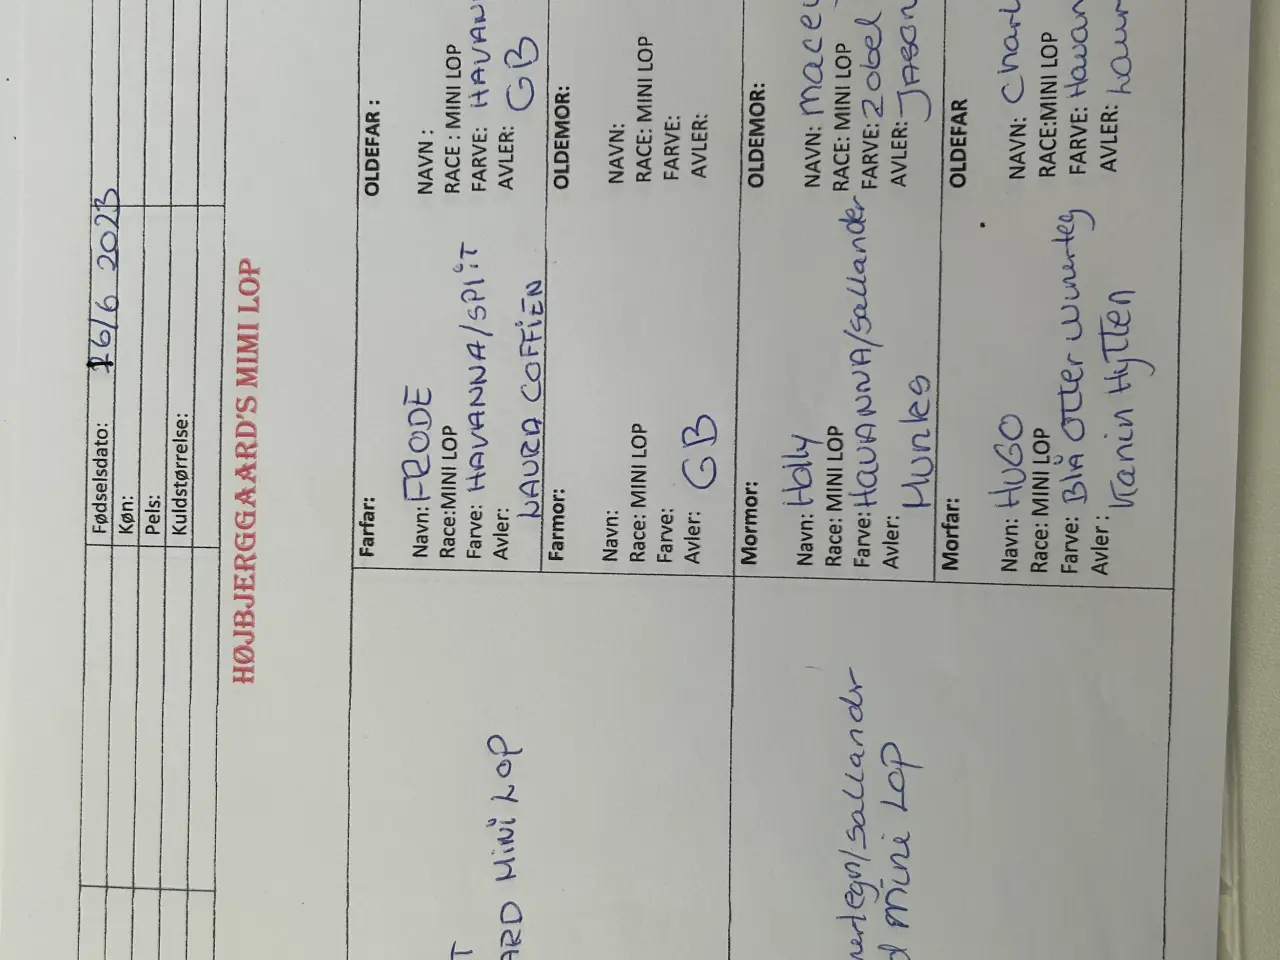 Fødselsdato: 16/6 2023
Køn:
Pels:
Kuldstørrelse:
HØJBJERGGAARD'S MIMI LOP
ARD MiNi LOP
Sallandr
Mini LOP
Farfar:
Navn: FRODE
Race:MINI LOP
Farve: HAVANNA/SPLiT
Avler:
LAURA COFFiEN
Farmor:
Navn:
Race: MINI LOP
Farve:
Avler: GB
Mormor:
Navn: Holly
Race: MINI LOP
Farve: HAVANNA/Sallander
Avler:
Munkes
Morfar:
Navn: HUGO
Race: MINI LOP
Farve: Blå Otter
Avler: Kanin Hytten
OLDEFAR :
NAVN :
RACE : MINI LOP
FARVE: HAVAN
AVLER: GB
OLDEMOR:
NAVN:
RACE: MINI LOP
FARVE:
AVLER:
OLDEMOR:
NAVN:
RACE: MINI LOP
FARVE: Zobel
AVLER:
OLDEFAR
NAVN: Charl
RACE:MINI LOP
FARVE: Havan
AVLER: